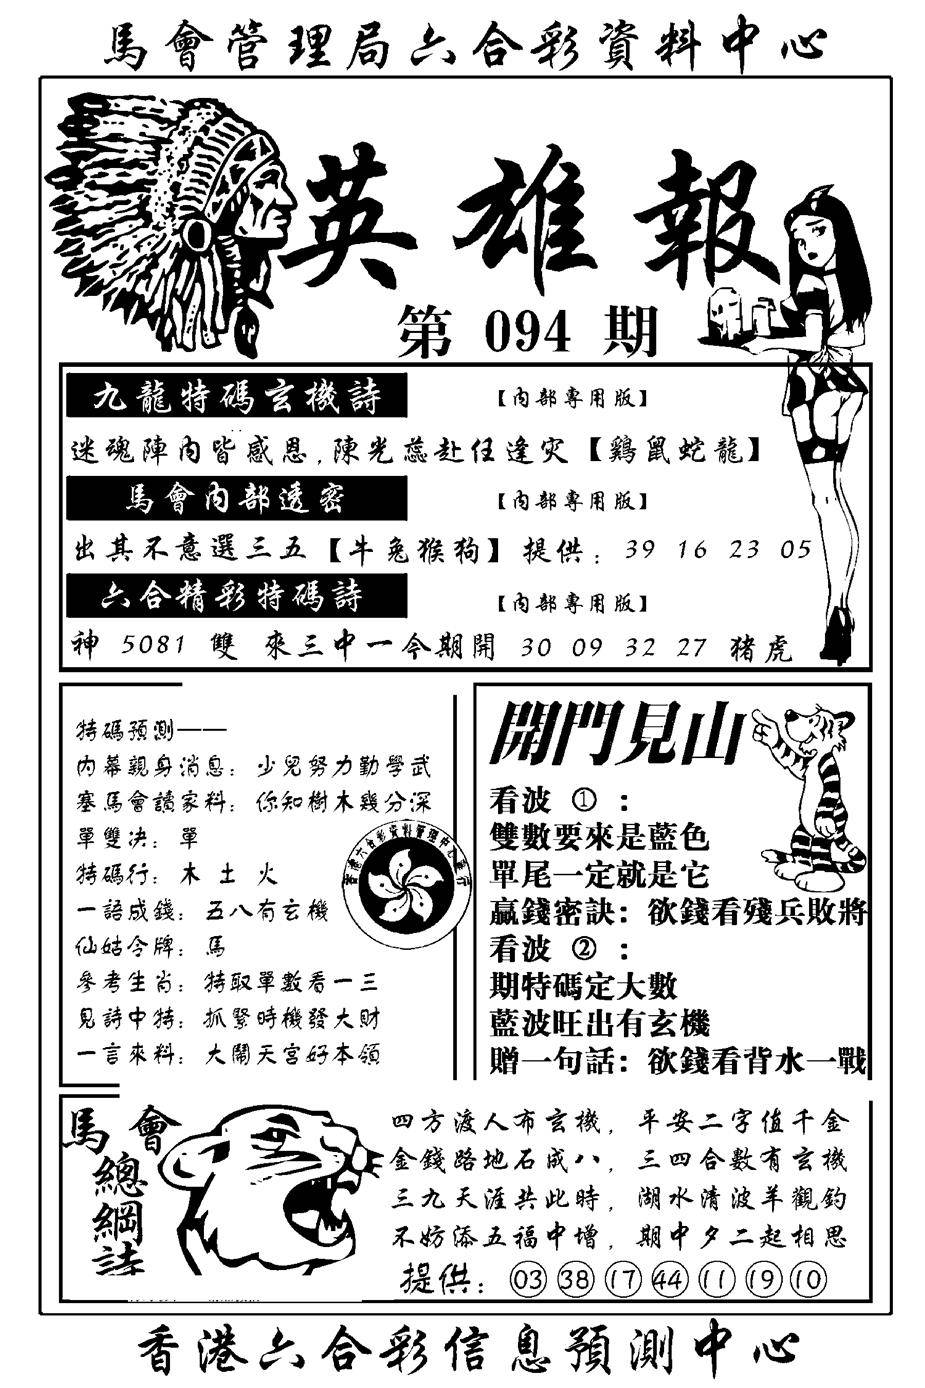 馬會管理局六合彩資料中心
英雄報
第 094 期
九龍特碼玄機詩 【內部專用版】
迷魂陣內皆感恩,陳光蕊赴任逢灾【鷄鼠蛇龍】
馬會內部透密 【內部專用版】
出其不意選三五【牛兔猴狗】 提供: 39 16 23 05
六合精彩特碼詩 【內部專用版】
神 5081 雙 來三中一今期開 30 09 32 27 猪虎
特碼預測——
內幕親身消息: 少兒努力勤學武
塞馬會讀家料: 你知樹木幾分深
單雙决: 單
特碼行: 木 土 火
一語成錢: 五八有玄機
仙姑令牌: 馬
參考生肖: 特取單數看一三
見詩中特: 抓緊時機發大財
一言來料: 大鬧天宮好本領
開門見山
看波 ① :
雙數要來是藍色
單尾一定就是它
贏錢密訣: 欲錢看殘兵敗將
看波 ② :
期特碼定大數
藍波旺出有玄機
贈一句話: 欲錢看背水一戰
馬會
總綱詩
四方渡人布玄機, 平安二字值千金
金錢路地石成八, 三四合數有玄機
三九天涯共此時, 湖水清波羊觀鈞
不妨添五福中增, 期中夕二起相思
提供: 03 38 17 44 11 19 10
香港六合彩信息預測中心